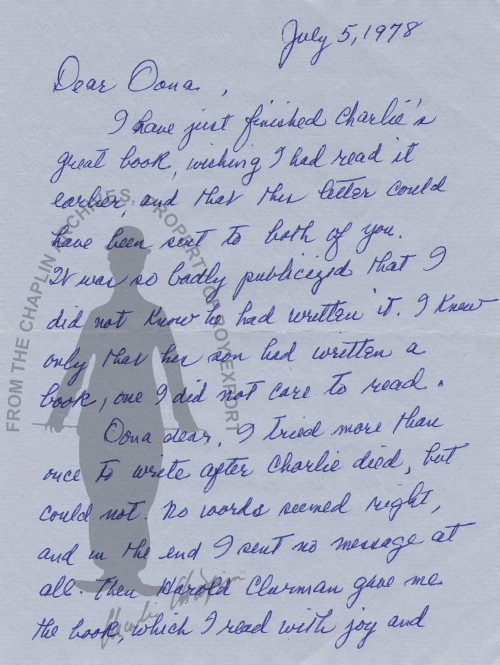 July 5, 1978
Dear Oona,
I have just finished Charlie's
great book, wishing I had read it
earlier, and that this letter could
have been sent to both of you.
It was so badly publicized that I
did not know he had written it. I knew
only that his son had written a
book, one I did not care to read.
Oona dear, I tried more than
once to write after Charlie died, but
could not. No words seemed right,
and in the end I sent no message at
all. Then Harold Clurman gave me
the book, which I read with joy and
FROM THE CHAPLIN ARCHIVES, PROPERTY OF ROY EXPORT
Charlie Chaplin